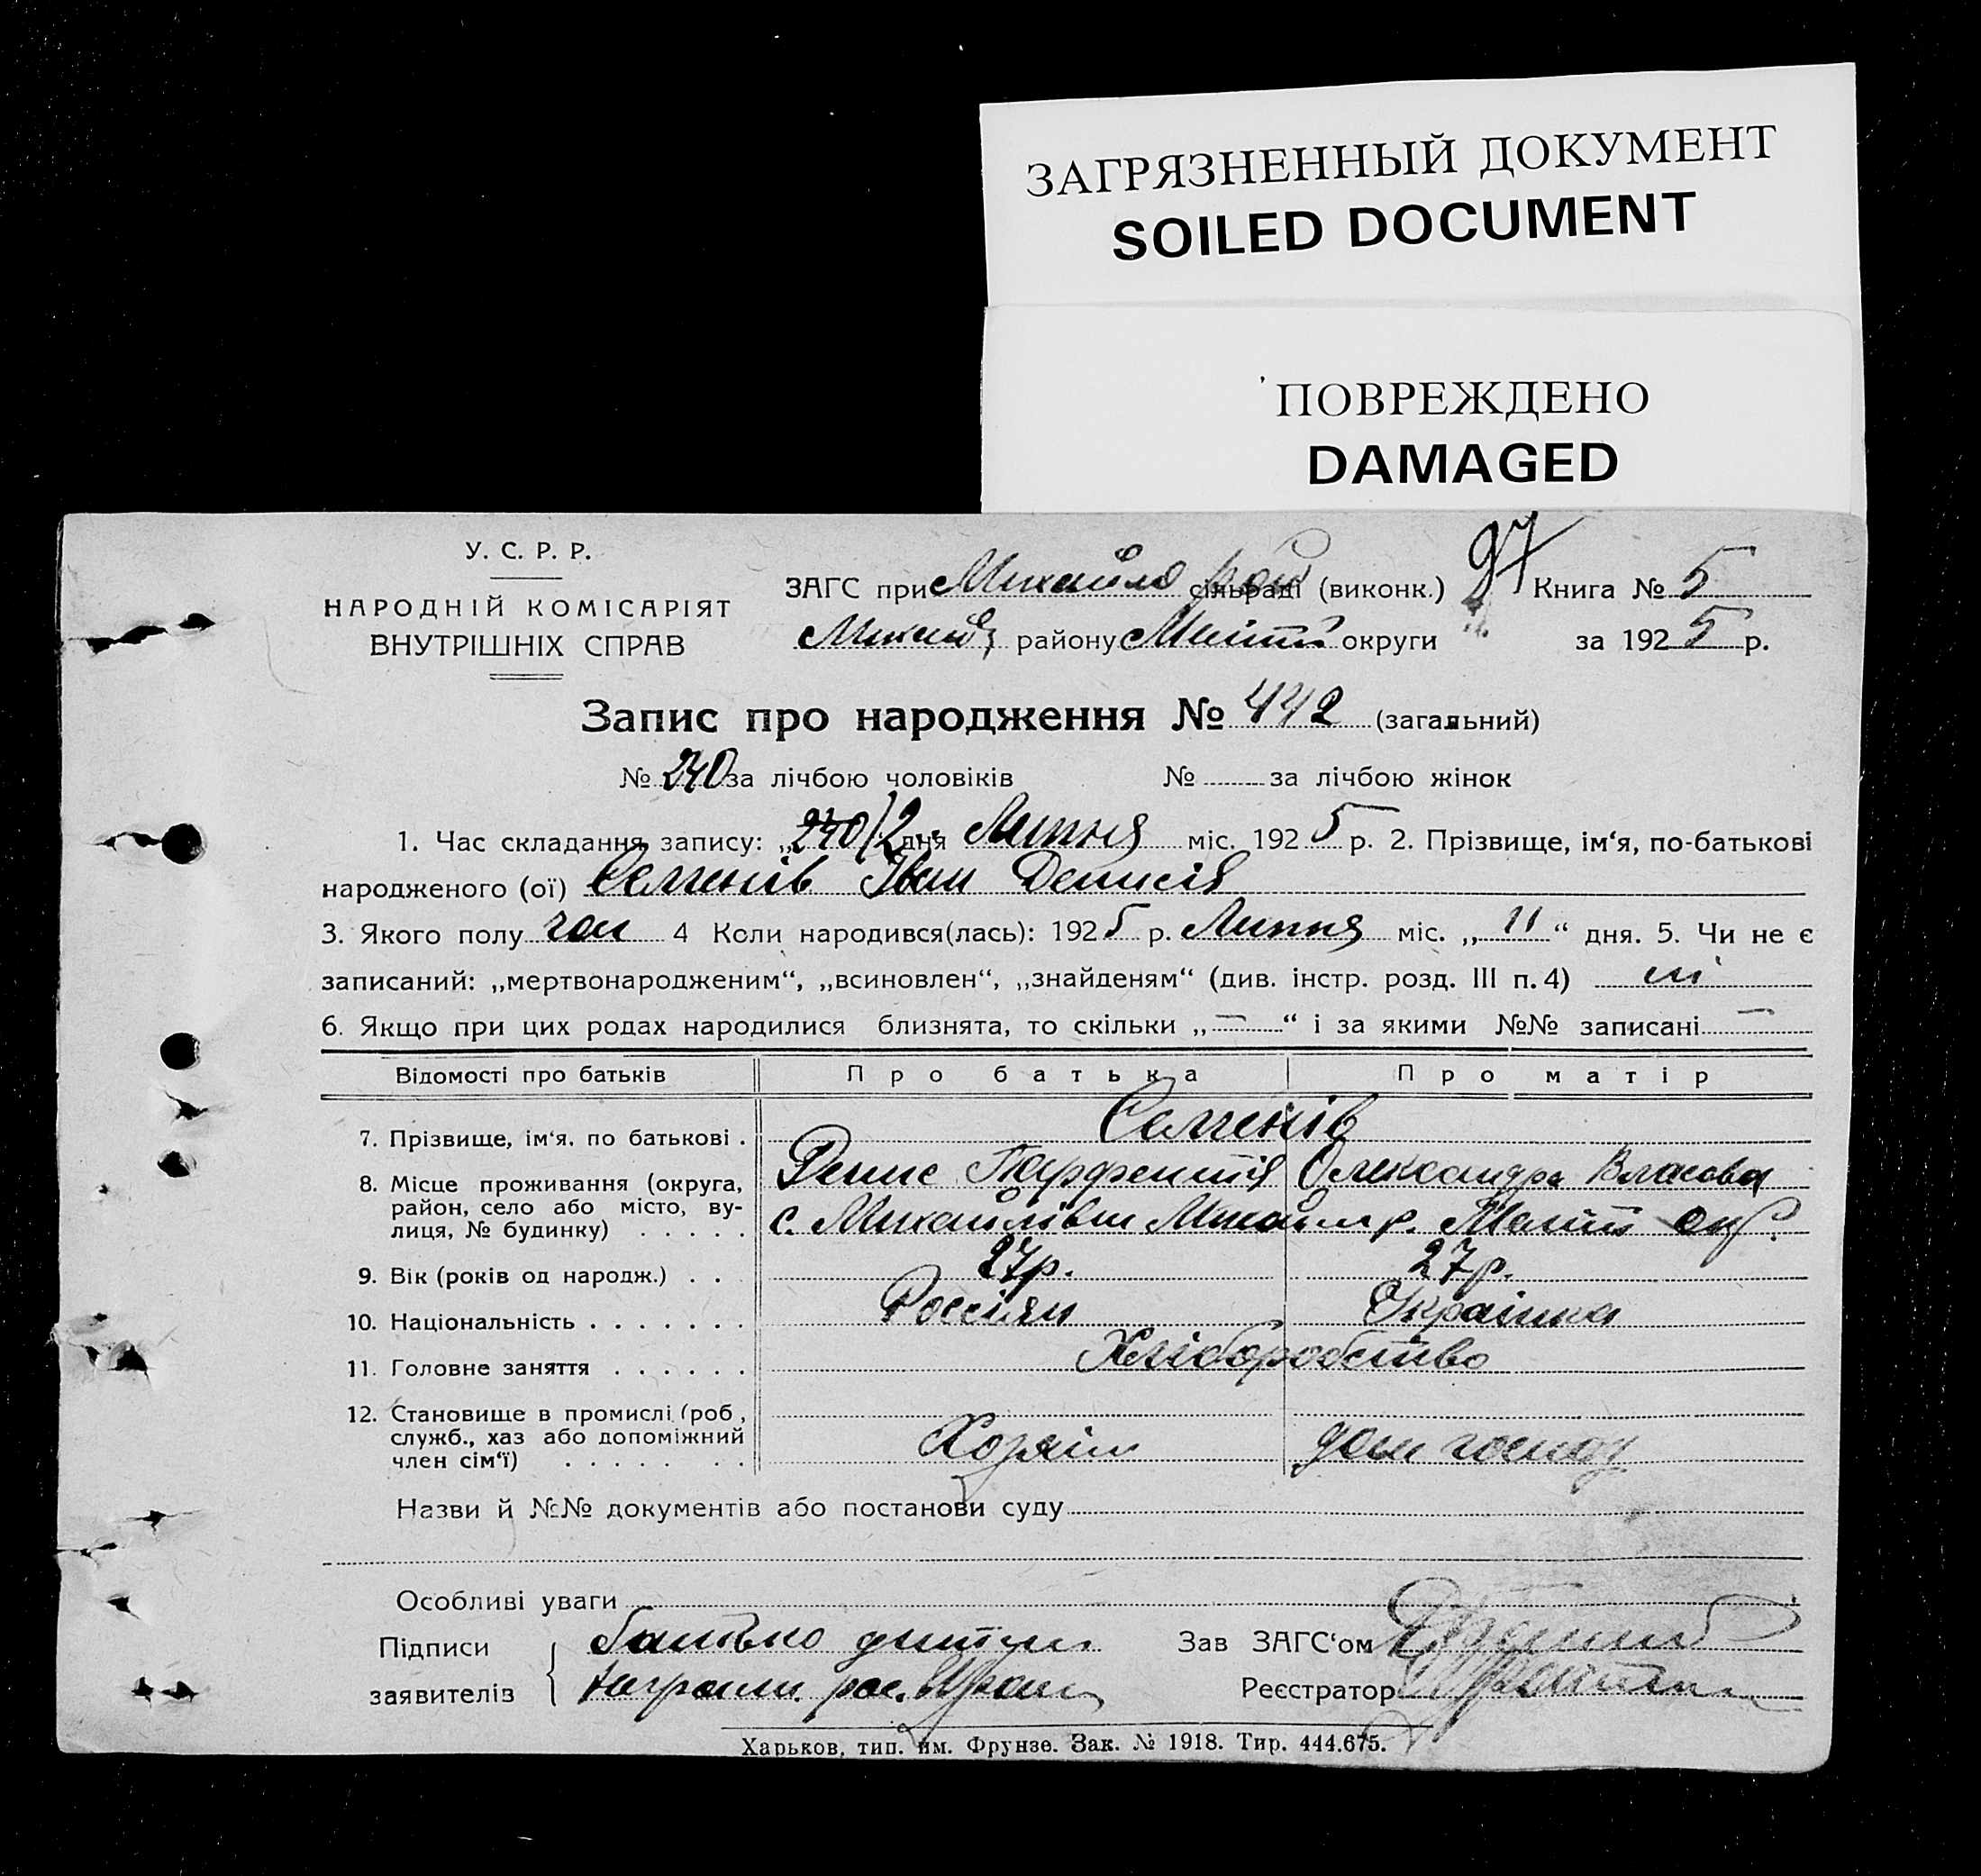 ЗАГРЯЗНЕННЫЙ ДОКУМЕНТ
SOILED DOCUMENT
ПОВРЕЖДЕНО
DAMAGED
У. С. Р. Р.
НАРОДНІЙ КОМІСАРІЯТ
ВНУТРІШНІХ СПРАВ
ЗАГС при Михайло рай сільраді (виконк.) 97 Книга № 5
району Меліт округи за 1925 р.
Запис про народження № 442 (загальний)
№ 240 за лічбою чоловіків № за лічбою жінок
1. Час складання запису: „240 12 дня Липня міс. 1925 р. 2. Прізвище, ім‘я, по-батькові
народженого (ої) Семенів Іван Денисів
3. Якого полу чол 4 Коли народився(лась): 1925 р. Липня міс. „11“ дня. 5. Чи не є
записаний: „мертвонародженим“, „всиновлен“, „знайденям“ (див. інстр. розд. III п. 4) ні
6. Якщо при цих родах народилися близнята, то скільки „—“ і за якими №№ записані —
Відомості про батьків Про батька Про матір
7. Прізвище, ім‘я, по батькові . Семенів
Денис Парфентів Олександра Власова
8. Місце проживання (округа,
район, село або місто, ву-
лиця, № будинку) . . . . . с. Михайлівки Михайл р. Меліт окр.
9. Вік (років од народж.) . . 27р. 27р.
10. Національність . . . . . . . Россіян Українка
11. Головне заняття . . . . . . Хліборобство
12. Становище в промислі (роб,
служб., хаз або допоміжний
член сім‘ї) . . . . . . . Хозяїн дом господ
Назви й №№ документів або постанови суду
Особливі уваги
Підписи батько дитини Зав ЗАГС‘ом
заявителів Реєстратор
Харьков, тип. им. Фрунзе. Зак. № 1918. Тир. 444.675.